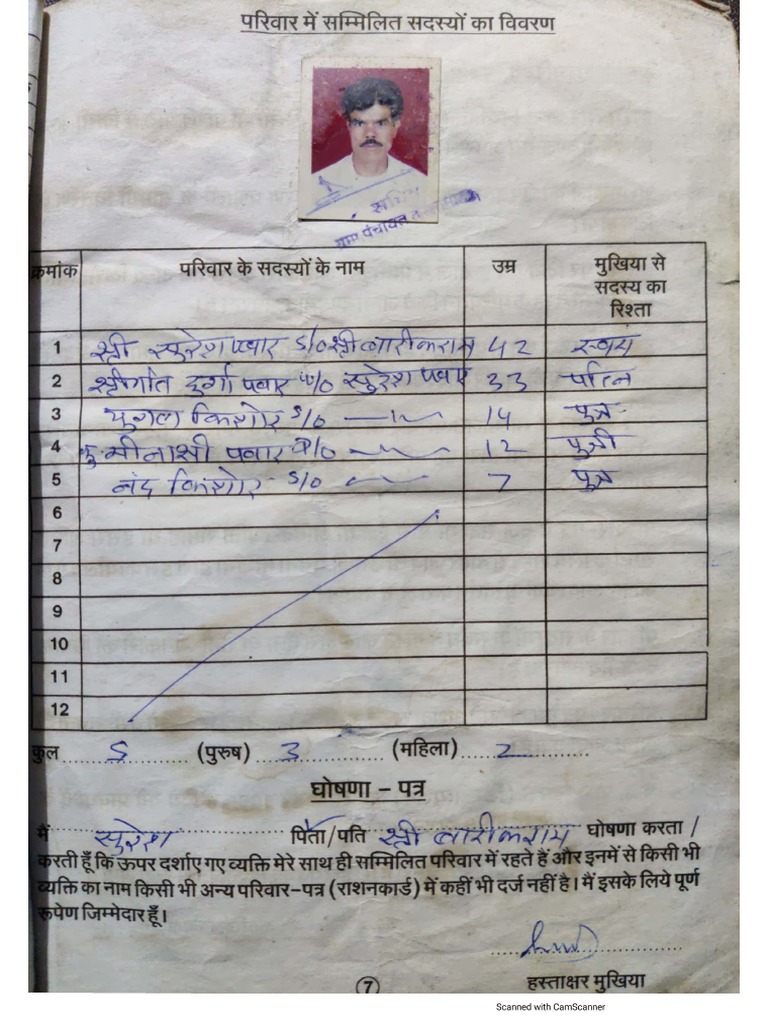 परिवार में सम्मिलित सदस्यों का विवरण
सचिव
ग्राम पंचायत
क्रमांक परिवार के सदस्यों के नाम उम्र मुखिया से सदस्य का रिश्ता
1 श्री सुरेश पवार S/o श्री बारीकराम 42 स्वयं
2 श्रीमति दुर्गा पवार W/o सुरेश पवार 33 पत्नि
3 युगल किशोर S/o —〃— 14 पुत्र
4 कु मीनाक्षी पवार D/o —〃— 12 पुत्री
5 नंद किशोर S/o —〃— 7 पुत्र
6
7
8
9
10
11
12
कुल 5 (पुरुष) 3 (महिला) 2
घोषणा – पत्र
मैं सुरेश पिता/पति श्री बारीकराम घोषणा करता /
करती हूँ कि ऊपर दर्शाए गए व्यक्ति मेरे साथ ही सम्मिलित परिवार में रहते हैं और इनमें से किसी भी
व्यक्ति का नाम किसी भी अन्य परिवार-पत्र (राशनकार्ड) में कहीं भी दर्ज नहीं है। मैं इसके लिये पूर्ण
रूपेण जिम्मेदार हूँ।
हस्ताक्षर मुखिया
7
Scanned with CamScanner